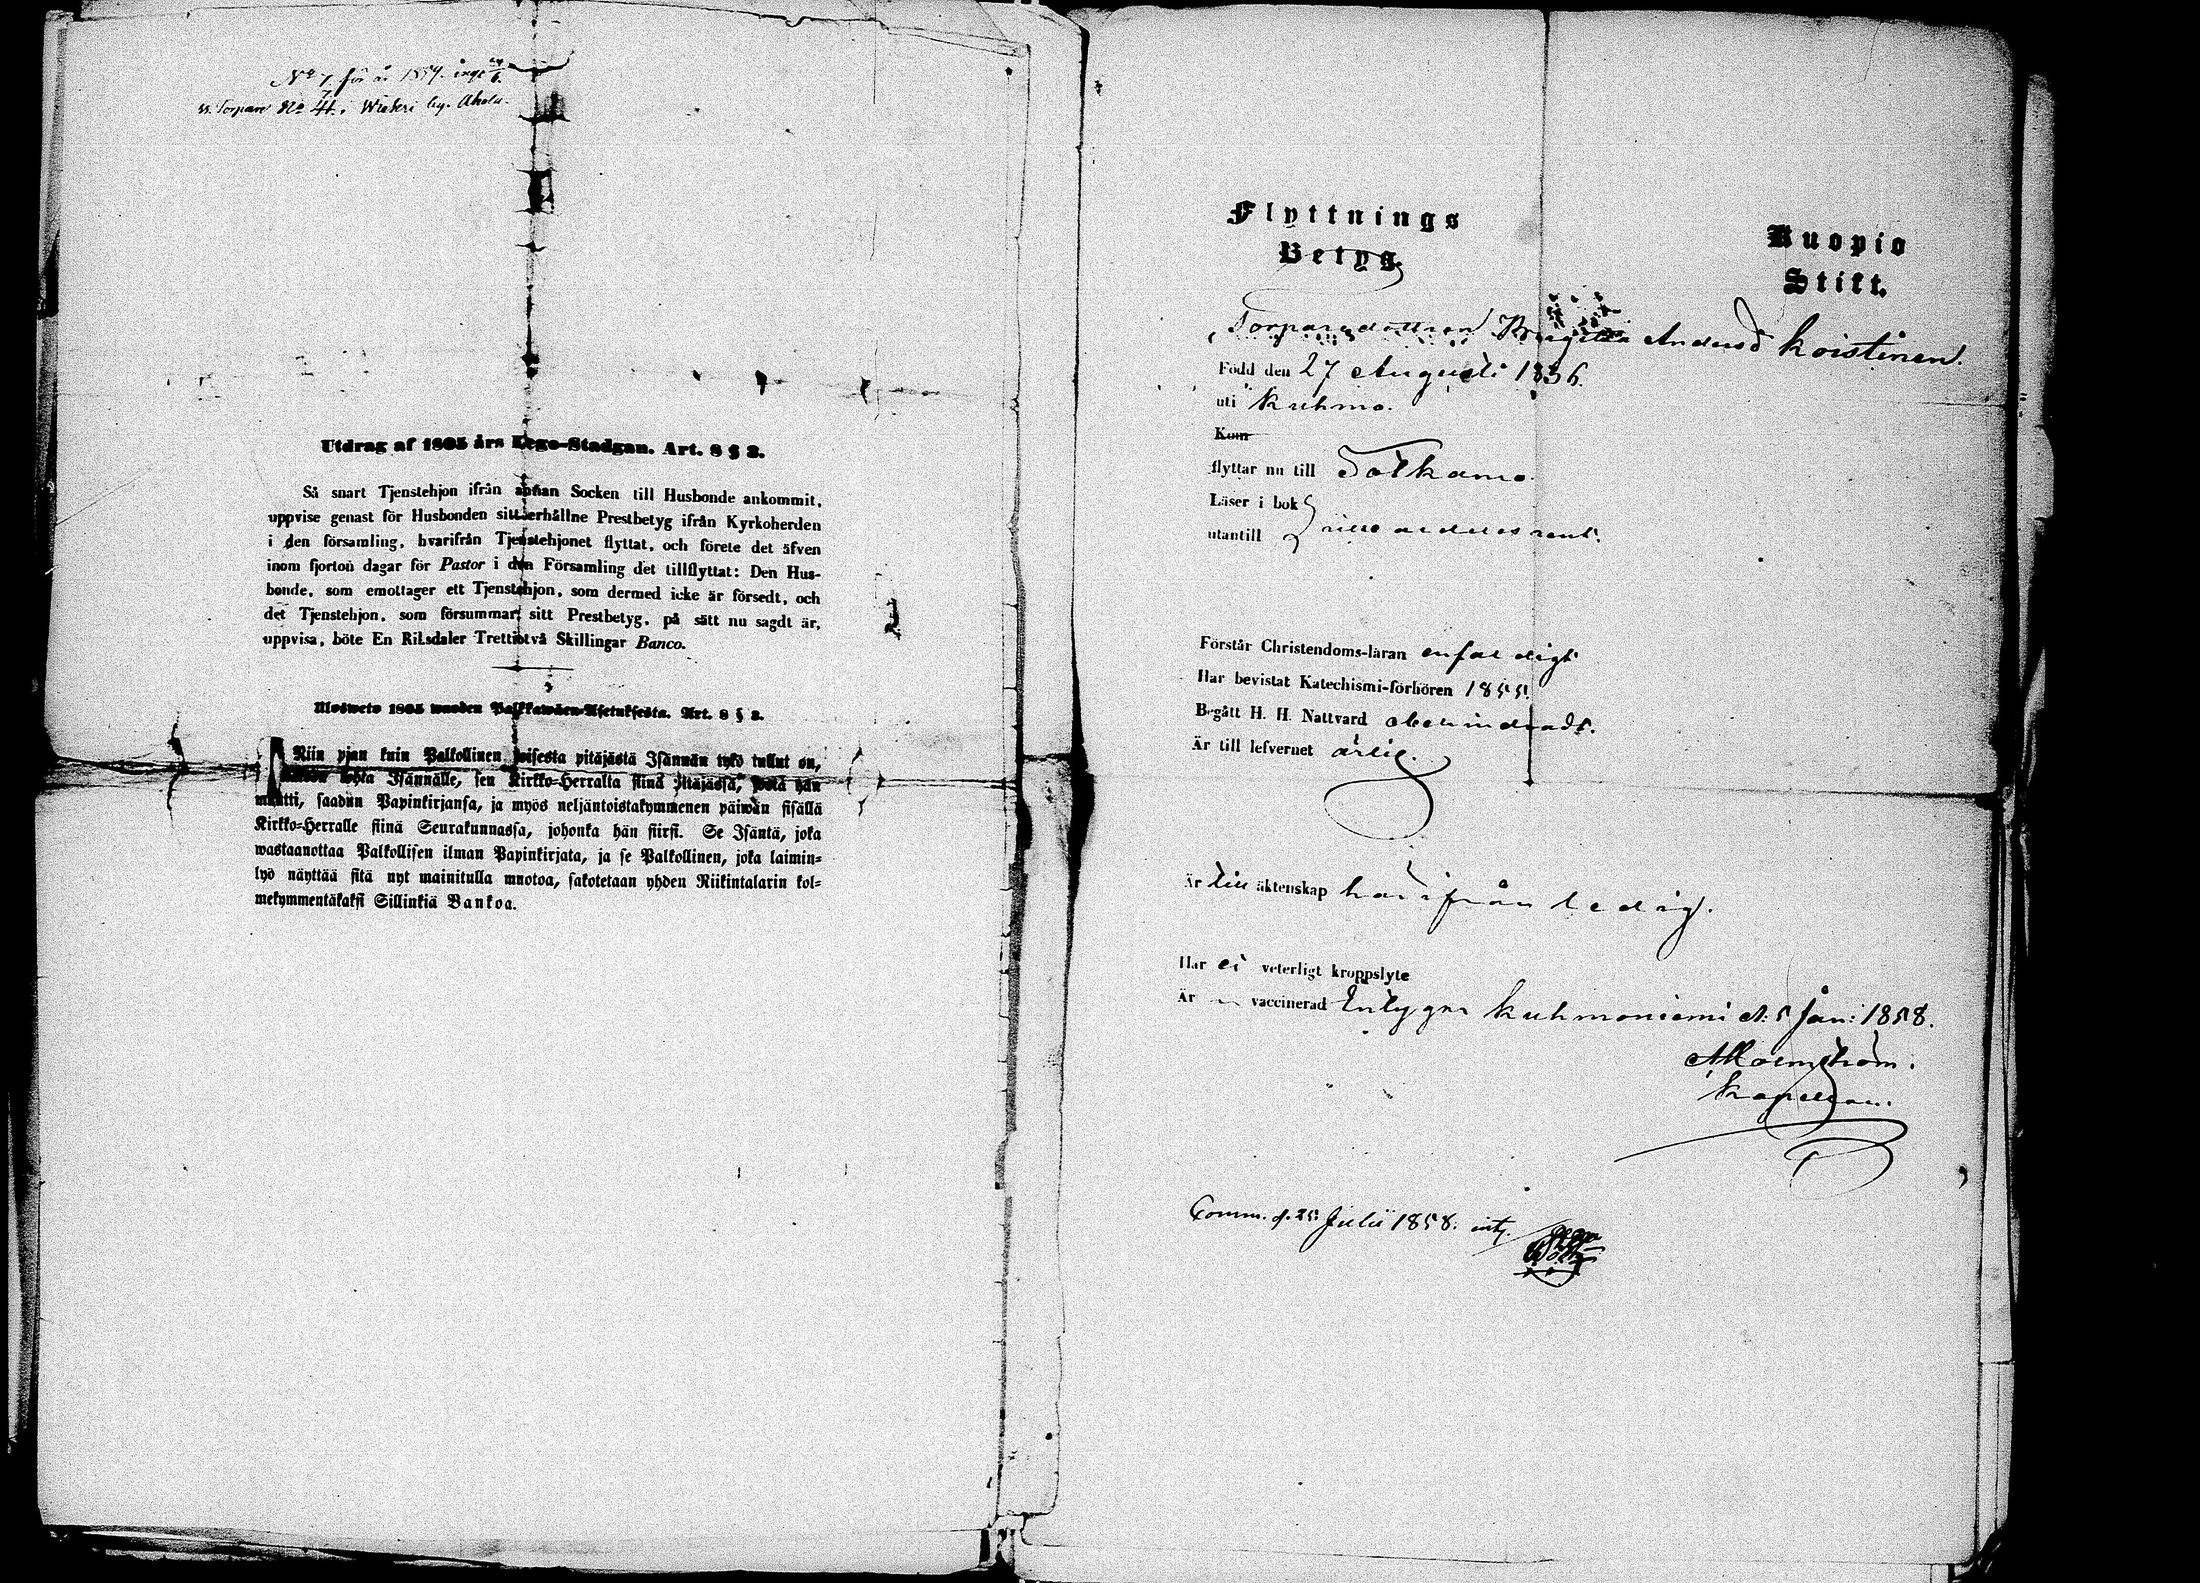 No 7 för år 1859. ing.
Torpare No 41. Wieksi by. Ahola.
Utdrag af 1805 års Lego-Stadgan. Art. 8 § 3.
Så snart Tjenstehjon ifrån annan Socken till Husbonde ankommit,
uppvise genast för Husbonden sitt erhållne Prestbetyg ifrån Kyrkoherden
i den församling, hvarifrån Tjenstehjonet flyttat, och förete det äfven
inom fjorton dagar för Pastor i den Församling det tillflyttat: Den Hus-
bonde, som emottager ett Tjenstehjon, som dermed icke är försedt, och
det Tjenstehjon, som försummar sitt Prestbetyg, på sätt nu sagdt är,
uppvisa, böte En Riksdaler Trettiotvå Skillingar Banco.
Ulosweto 1805 wuoden Palkkawäen-Asetuksesta. Art. 8 § 3.
Niin pian kuin Palkollinen toisesta pitäjästä Isännän tykö tullut on,
kohta Isännälle, sen Kirkko-Herralta siinä pitäjässä, josta hän
muutti, saadun Papinkirjansa, ja myös neljäntoistakymmenen päiwän sisällä
Kirkko-Herralle siinä Seurakunnassa, johonka hän siirsi. Se Isäntä, joka
wastaanottaa Palkollisen ilman Papinkirjata, ja se Palkollinen, joka laimin-
lyö näyttää sitä nyt mainitulla muotoa, sakotetaan yhden Riikintalarin kol-
mekymmentäkaksi Sillinkiä Bankoa.
Flyttnings
Betyg.
Kuopio
Stift.
Torparedottren Brigitta Andersd Koistinen.
Född den 27 Augusti 1836.
uti Kuhmo.
Kom
flyttar nu till Sotkamo.
Läser i bok
utantill
Förstår Christendoms-läran enfaldigt
Har bevistat Katechismi-förhören 1855.
Begått H. H. Nattvard obehindradt.
Är till lefvernet ärlig.
Är till äktenskap härifrån ledig.
Har ei veterligt kroppslyte
Är vaccinerad Intygar Kuhmoniemi d. 5 Jan: 1858.
A Malmström.
Kapellan.
Comm. d. 25 Julii 1858. int.